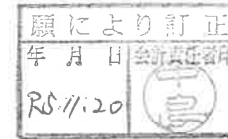 願により訂正
年月日 会計責任者印
R5.11.20
中島